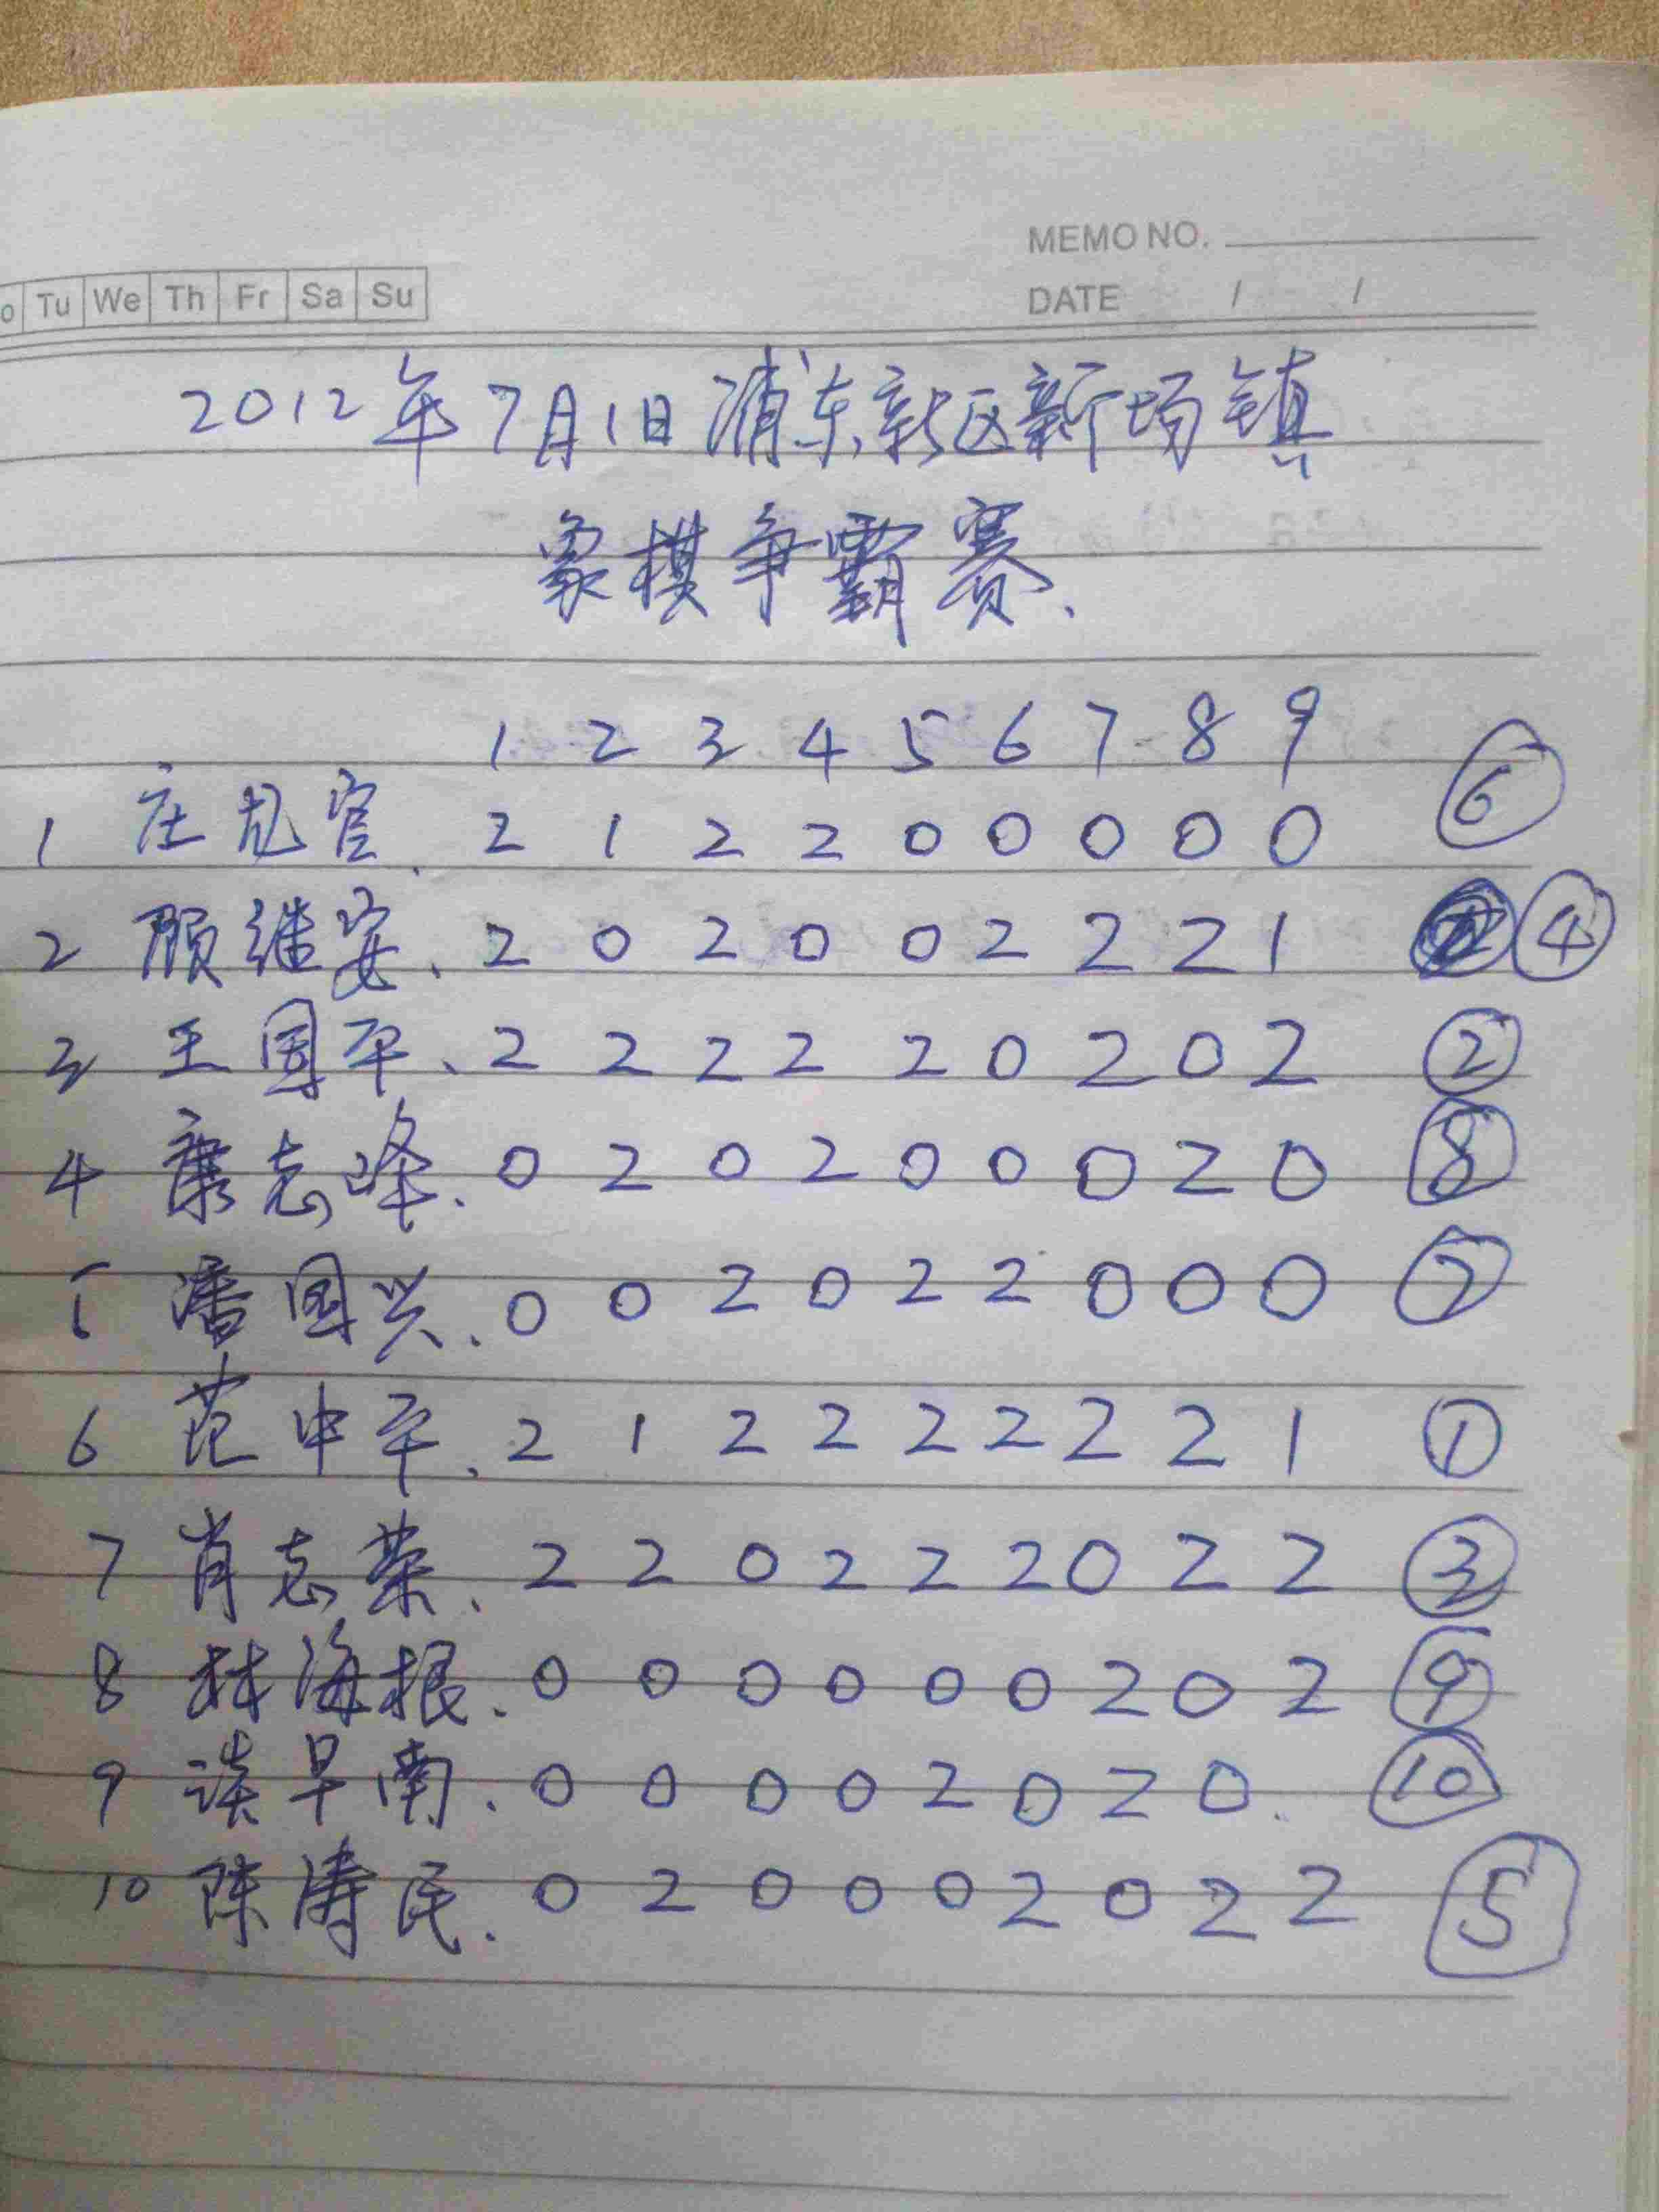 MEMO NO.
o Tu We Th Fr Sa Su
DATE / /
2012年7月1日浦东新区新场镇
象棋争霸赛、
1 2 3 4 5 6 7 8 9
1 庄尤官 2 1 2 2 0 0 0 0 0 ⑥
2 顾继安、2 0 2 0 0 2 2 2 1 ④
3 王国平、2 2 2 2 2 0 2 0 2 ②
4 康志峰、0 2 0 2 0 0 0 2 0 ⑧
5 潘国兴、0 0 2 0 2 2 0 0 0 ⑦
6 范中平、2 1 2 2 2 2 2 2 1 ①
7 肖志荣、2 2 0 2 2 2 0 2 2 ③
8 林海根、0 0 0 0 0 0 2 0 2 ⑨
9 谈早南、0 0 0 0 2 0 2 0. ⑩
10 陈涛民、0 2 0 0 0 2 0 2 2 ⑤